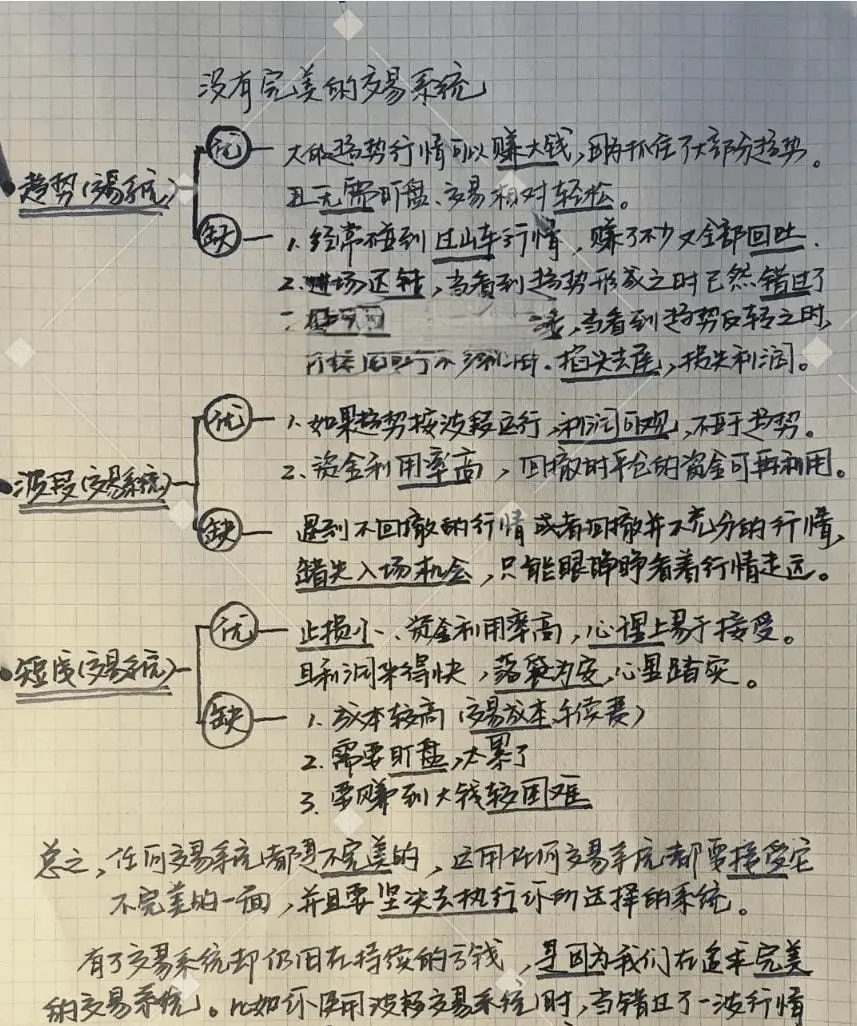 没有完美的交易系统
优 — 大的趋势行情可以赚大钱,因为抓住了大部分趋势。
•趋势(交易系统)
且无需盯盘、交易相对轻松。
缺 — 1. 经常碰到过山车行情,赚了不少又全部回吐.
2. 进场迟钝,当看到趋势形成之时已然错过了
,当看到趋势反转之时,
掐头去尾,损失利润。
优 — 1. 如果趋势按波段运行,利润可观,不亚于趋势。
2. 资金利用率高,回撤时平仓的资金可再利用。
•波段(交易系统)
缺 — 遇到不回撤的行情或者回撤并不充分的行情,
错失入场机会,只能眼睁睁看着行情走远。
优 — 止损小、资金利用率高,心理上易于接受。
且利润来得快,落袋为安,心里踏实。
•短线(交易系统)
缺 — 1. 成本较高(交易成本,手续费)
2. 需要盯盘,太累了
3. 要赚到大钱较困难
总之,任何交易系统都是不完美的,运用任何交易系统都要接受它
不完美的一面,并且要坚决去执行你所选择的系统。
有了交易系统却仍旧在持续的亏钱,是因为我们在追求完美
的交易系统。比如你使用波段交易系统时,当错过了一波行情